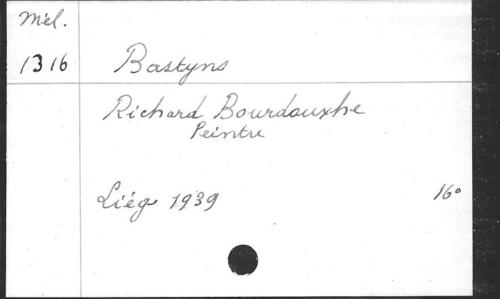 Mél.
1316 Bastyns
Richard Bourdouxhe
Peintre
Liége 1939 16°